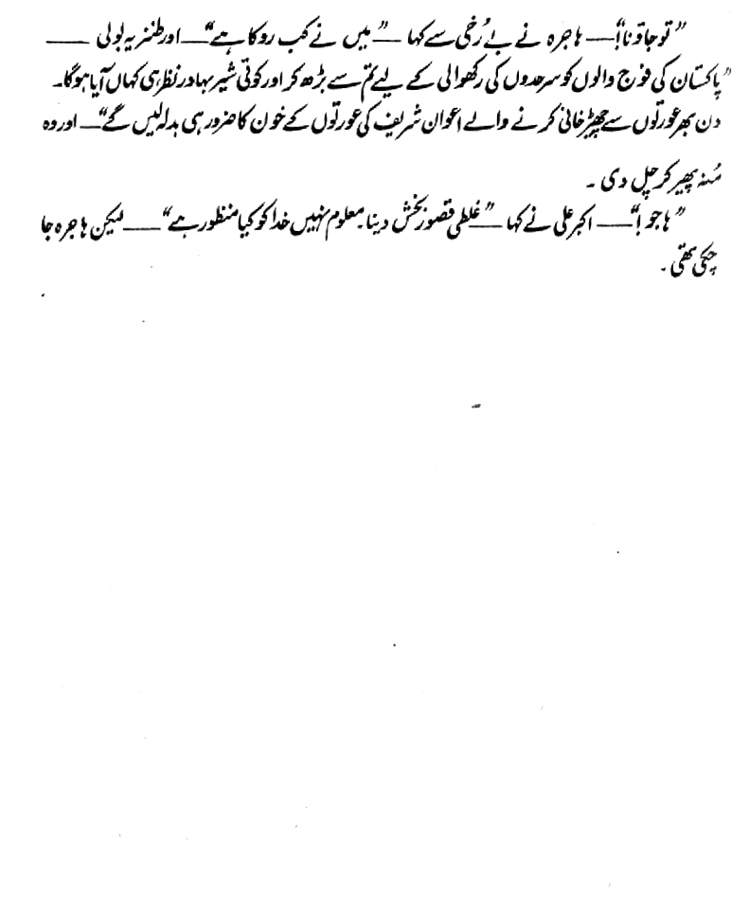 ”تو جاؤ نا!“ — ہاجرہ نے بے رُخی سے کہا — ”میں نے کب روکا ہے“ — اور طنزیہ بولی —
”پاکستان کی فوج والوں کو سرحدوں کی رکھوالی کے لیے تم سے بڑھ کر اور کوئی شیر بہادر نظر ہی کہاں آیا ہوگا۔
دن بھر عورتوں سے چھیڑ خانی کرنے والے اعوان شریف کی عورتوں کے خون کا ضرور ہی بدلہ لیں گے“ — اور وہ
مُنہ پھیر کر چل دی۔
”ہاجو!“ — اکبر علی نے کہا — ”غلطی قصور بخش دینا۔ معلوم نہیں خدا کو کیا منظور ہے“ — لیکن ہاجرہ جا
چکی تھی۔